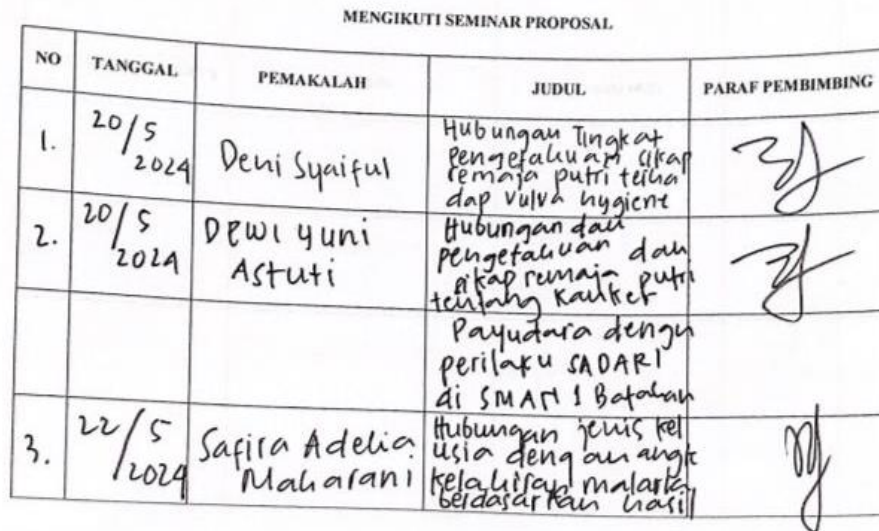 MENGIKUTI SEMINAR PROPOSAL
NO TANGGAL PEMAKALAH JUDUL PARAF PEMBIMBING
1. 20/5 2024 Deni Syaiful
Hubungan Tingkat
pengetahuan sikap
remaja putri terha
dap vulva hygiene
2. 20/5 2024 Dewi Yuni
Astuti
Hubungan dan
pengetahuan dan
sikap remaja putri
tentang kanker
Payudara dengn
perilaku SADARI
di SMAN 1 Batahan
3. 22/5 2024 Safira Adelia
Maharani
Hubungan jenis kel
usia dengan angk
kelahiran malaria
berdasarkan hasil